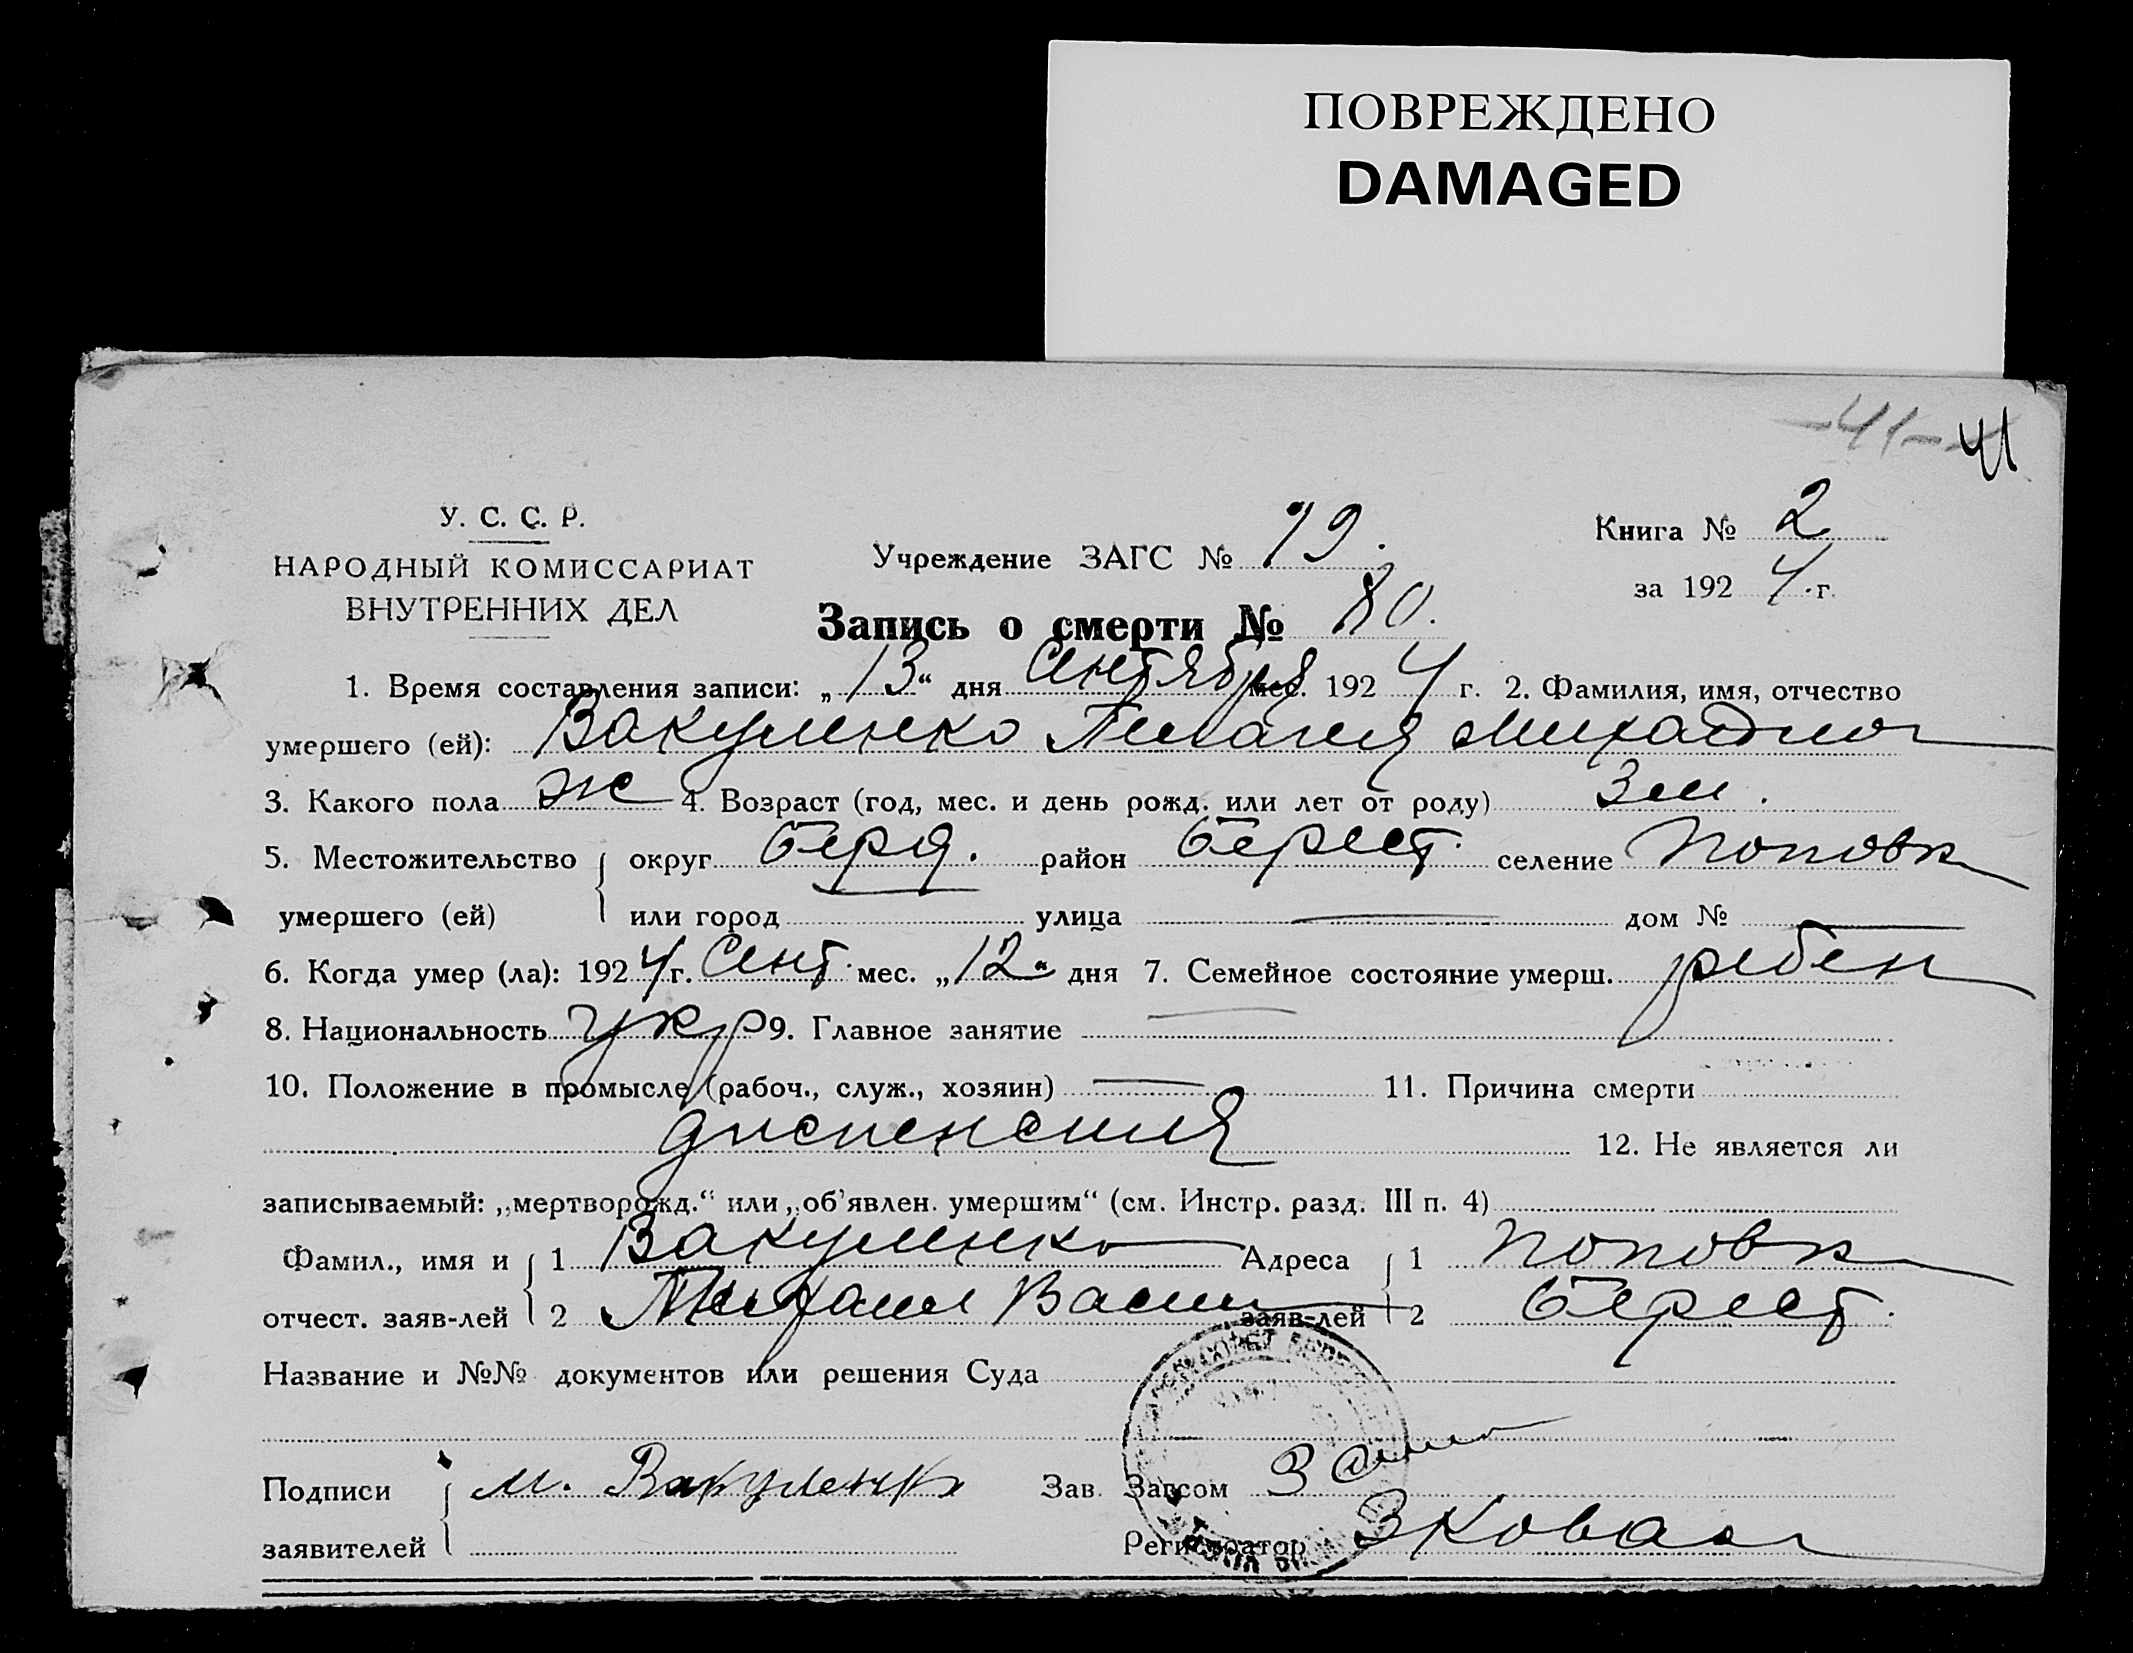 ПОВРЕЖДЕНО
DAMAGED
-41- 41
У. С. С. Р.
НАРОДНЫЙ КОМИССАРИАТ
ВНУТРЕННИХ ДЕЛ
Учреждение ЗАГС № 19.
Книга № 2
за 1924 г.
Запись о смерти № 80.
1. Время составления записи: „13“ дня Сентября мес. 1924 г. 2. Фамилия, имя, отчество
умершего (ей): Вакуленко Пелагея Михайлов
3. Какого пола ж 4. Возраст (год, мес. и день рожд. или лет от роду) 3 м.
5. Местожительство округ Берд. район Берест. селение Поповк
умершего (ей) или город улица — дом № —
6. Когда умер (ла): 1924 г. Сент. мес. „12“ дня 7. Семейное состояние умерш. ребен
8. Национальность укр 9. Главное занятие —
10. Положение в промысле (рабоч., служ., хозяин) — 11. Причина смерти
диспепсия
12. Не является ли
записываемый: „мертворожд.“ или „об'явлен. умершим“ (см. Инстр. разд. III п. 4)
Фамил., имя и 1 Вакуленко Адреса 1 Поповк
отчест. заяв-лей 2 Михаил Васил заяв-лей 2 Берест.
Название и №№ документов или решения Суда
Подписи М. Вакуленко Зав. Загсом
заявителей Регистратор